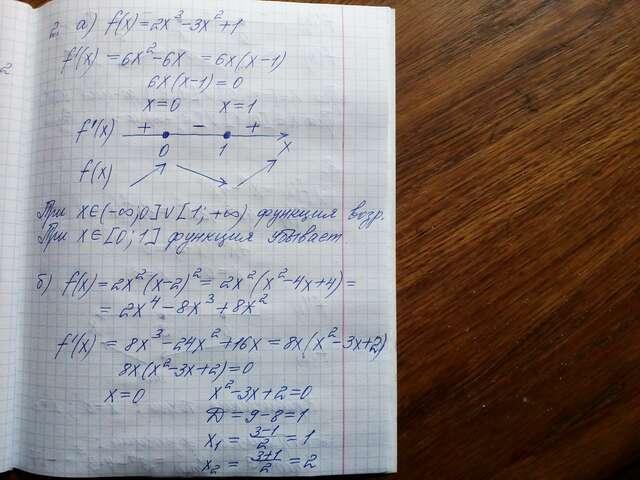 2
2. а) f(x) = 2x³ - 3x² + 1
f'(x) = 6x² - 6x = 6x(x-1)
6x(x-1) = 0
x=0 x=1
f'(x) + - +
0 1 x
f(x)
При x∈(-∞; 0]∪[1; +∞) функция возр.
При x∈[0; 1] функция убывает.
б) f(x) = 2x²(x-2)² = 2x²(x²-4x+4) =
= 2x⁴ - 8x³ + 8x²
f'(x) = 8x³ - 24x² + 16x = 8x(x²-3x+2)
8x(x²-3x+2) = 0
x=0 x²-3x+2=0
Д = 9-8 = 1
x₁ = (3-1)/2 = 1
x₂ = (3+1)/2 = 2